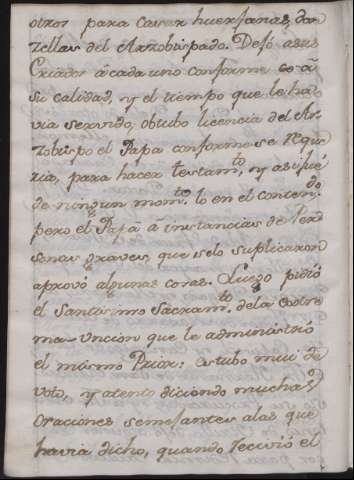 otros para casar huerfanas, don
zellas del Arzobispado. Dejó a sus
Criados á cada uno conforme â
su calidad, ny el tiempo que le ha
via servido; obtubo licencia del Ar
zobispo el Papa conforme se requi
ria, para hacer testam.to, ny asi fué
de ningun mom.to lo en el conten.do
pero el Papâ â instancias de Perd
sonas graves, que se lo suplicaron
aprovó algunas cosas. Luego pidió
el Santisimo Sacram.to de la Estre
ma Uncion que le administrió
el mismo Prior: estubo mui de
voto, ny atento diciendo muchas
oraciones semejantes a las que
havia dicho, quando recivió el